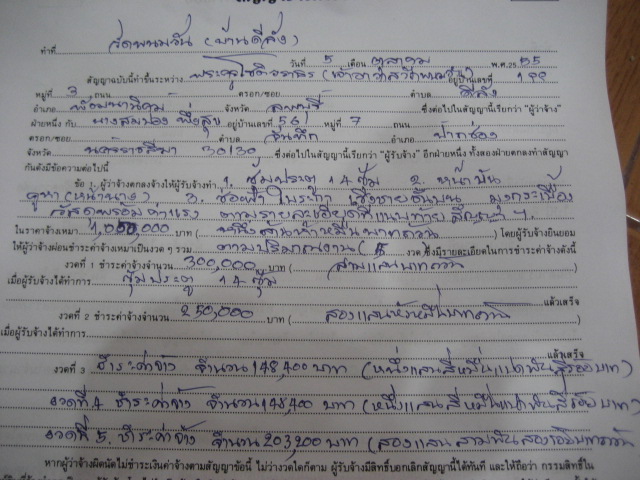 ทำที่ วัดพนมวัน (บ้านดีลัง)
วันที่ 5 เดือน ตุลาคม พ.ศ. 2555
สัญญาฉบับนี้ทำขึ้นระหว่าง พระครู (เจ้าอาวาสวัดพนมวัน) อยู่บ้านเลขที่ 199
หมู่ที่ 3 ถนน ตรอก/ซอย ตำบล ดีลัง
อำเภอ พัฒนานิคม จังหวัด ลพบุรี ซึ่งต่อไปในสัญญานี้เรียกว่า "ผู้ว่าจ้าง"
ฝ่ายหนึ่ง กับ นางสมปอง พึ่งสุข อยู่บ้านเลขที่ 561 หมู่ที่ 7 ถนน
ตรอก/ซอย ตำบล จันทึก อำเภอ ปากช่อง
จังหวัด นครราชสีมา 30130 ซึ่งต่อไปในสัญญานี้เรียกว่า "ผู้รับจ้าง" อีกฝ่ายหนึ่ง ทั้งสองฝ่ายตกลงทำสัญญา
กันดังมีข้อความต่อไปนี้
ข้อ 1. ผู้ว่าจ้างตกลงจ้างให้ผู้รับจ้างทำ 1. ซุ้มประตู 14 ซุ้ม 2. หน้าบัน
คูหา (หน้านาง) 3. ช่อฟ้า ใบระกา เชิงชายคันบน มุงกระเบื้อง
วัสดุพร้อมค่าแรง ตามรายละเอียดที่แนบท้ายสัญญา ฯ
ในราคาจ้างเหมา 1,050,000 บาท (หนึ่งล้านห้าหมื่นบาทถ้วน) โดยผู้รับจ้างยินยอม
ให้ผู้ว่าจ้างผ่อนชำระค่าจ้างเหมาเป็นงวด ๆ รวม ตามปริมาณงาน (5 งวด ซึ่งมีรายละเอียดในการชำระค่าจ้างดังนี้
งวดที่ 1 ชำระค่าจ้างจำนวน 300,000 บาท (สามแสนบาทถ้วน
เมื่อผู้รับจ้างได้ทำการ ซุ้มประตู 14 ซุ้ม แล้วเสร็จ
งวดที่ 2 ชำระค่าจ้างจำนวน 250,000 บาท (สองแสนห้าหมื่นบาทถ้วน
เมื่อผู้รับจ้างได้ทำการ แล้วเสร็จ
งวดที่ 3 ชำระค่าจ้าง จำนวน 148,400 บาท (หนึ่งแสนสี่หมื่นแปดพันสี่ร้อยบาท)
งวดที่ 4 ชำระค่าจ้าง จำนวน 148,400 บาท (หนึ่งแสนสี่หมื่นแปดพันสี่ร้อยบาท)
งวดที่ 5. ชำระค่าจ้าง จำนวน 203,200 บาท (สองแสนสามพันสองร้อยบาทถ้วน
หากผู้ว่าจ้างผิดนัดไม่ชำระเงินค่าจ้างตามสัญญาข้อนี้ ไม่ว่างวดใดก็ตาม ผู้รับจ้างมีสิทธิ์บอกเลิกสัญญานี้ได้ทันที และให้ถือว่า กรรมสิทธิ์ใน